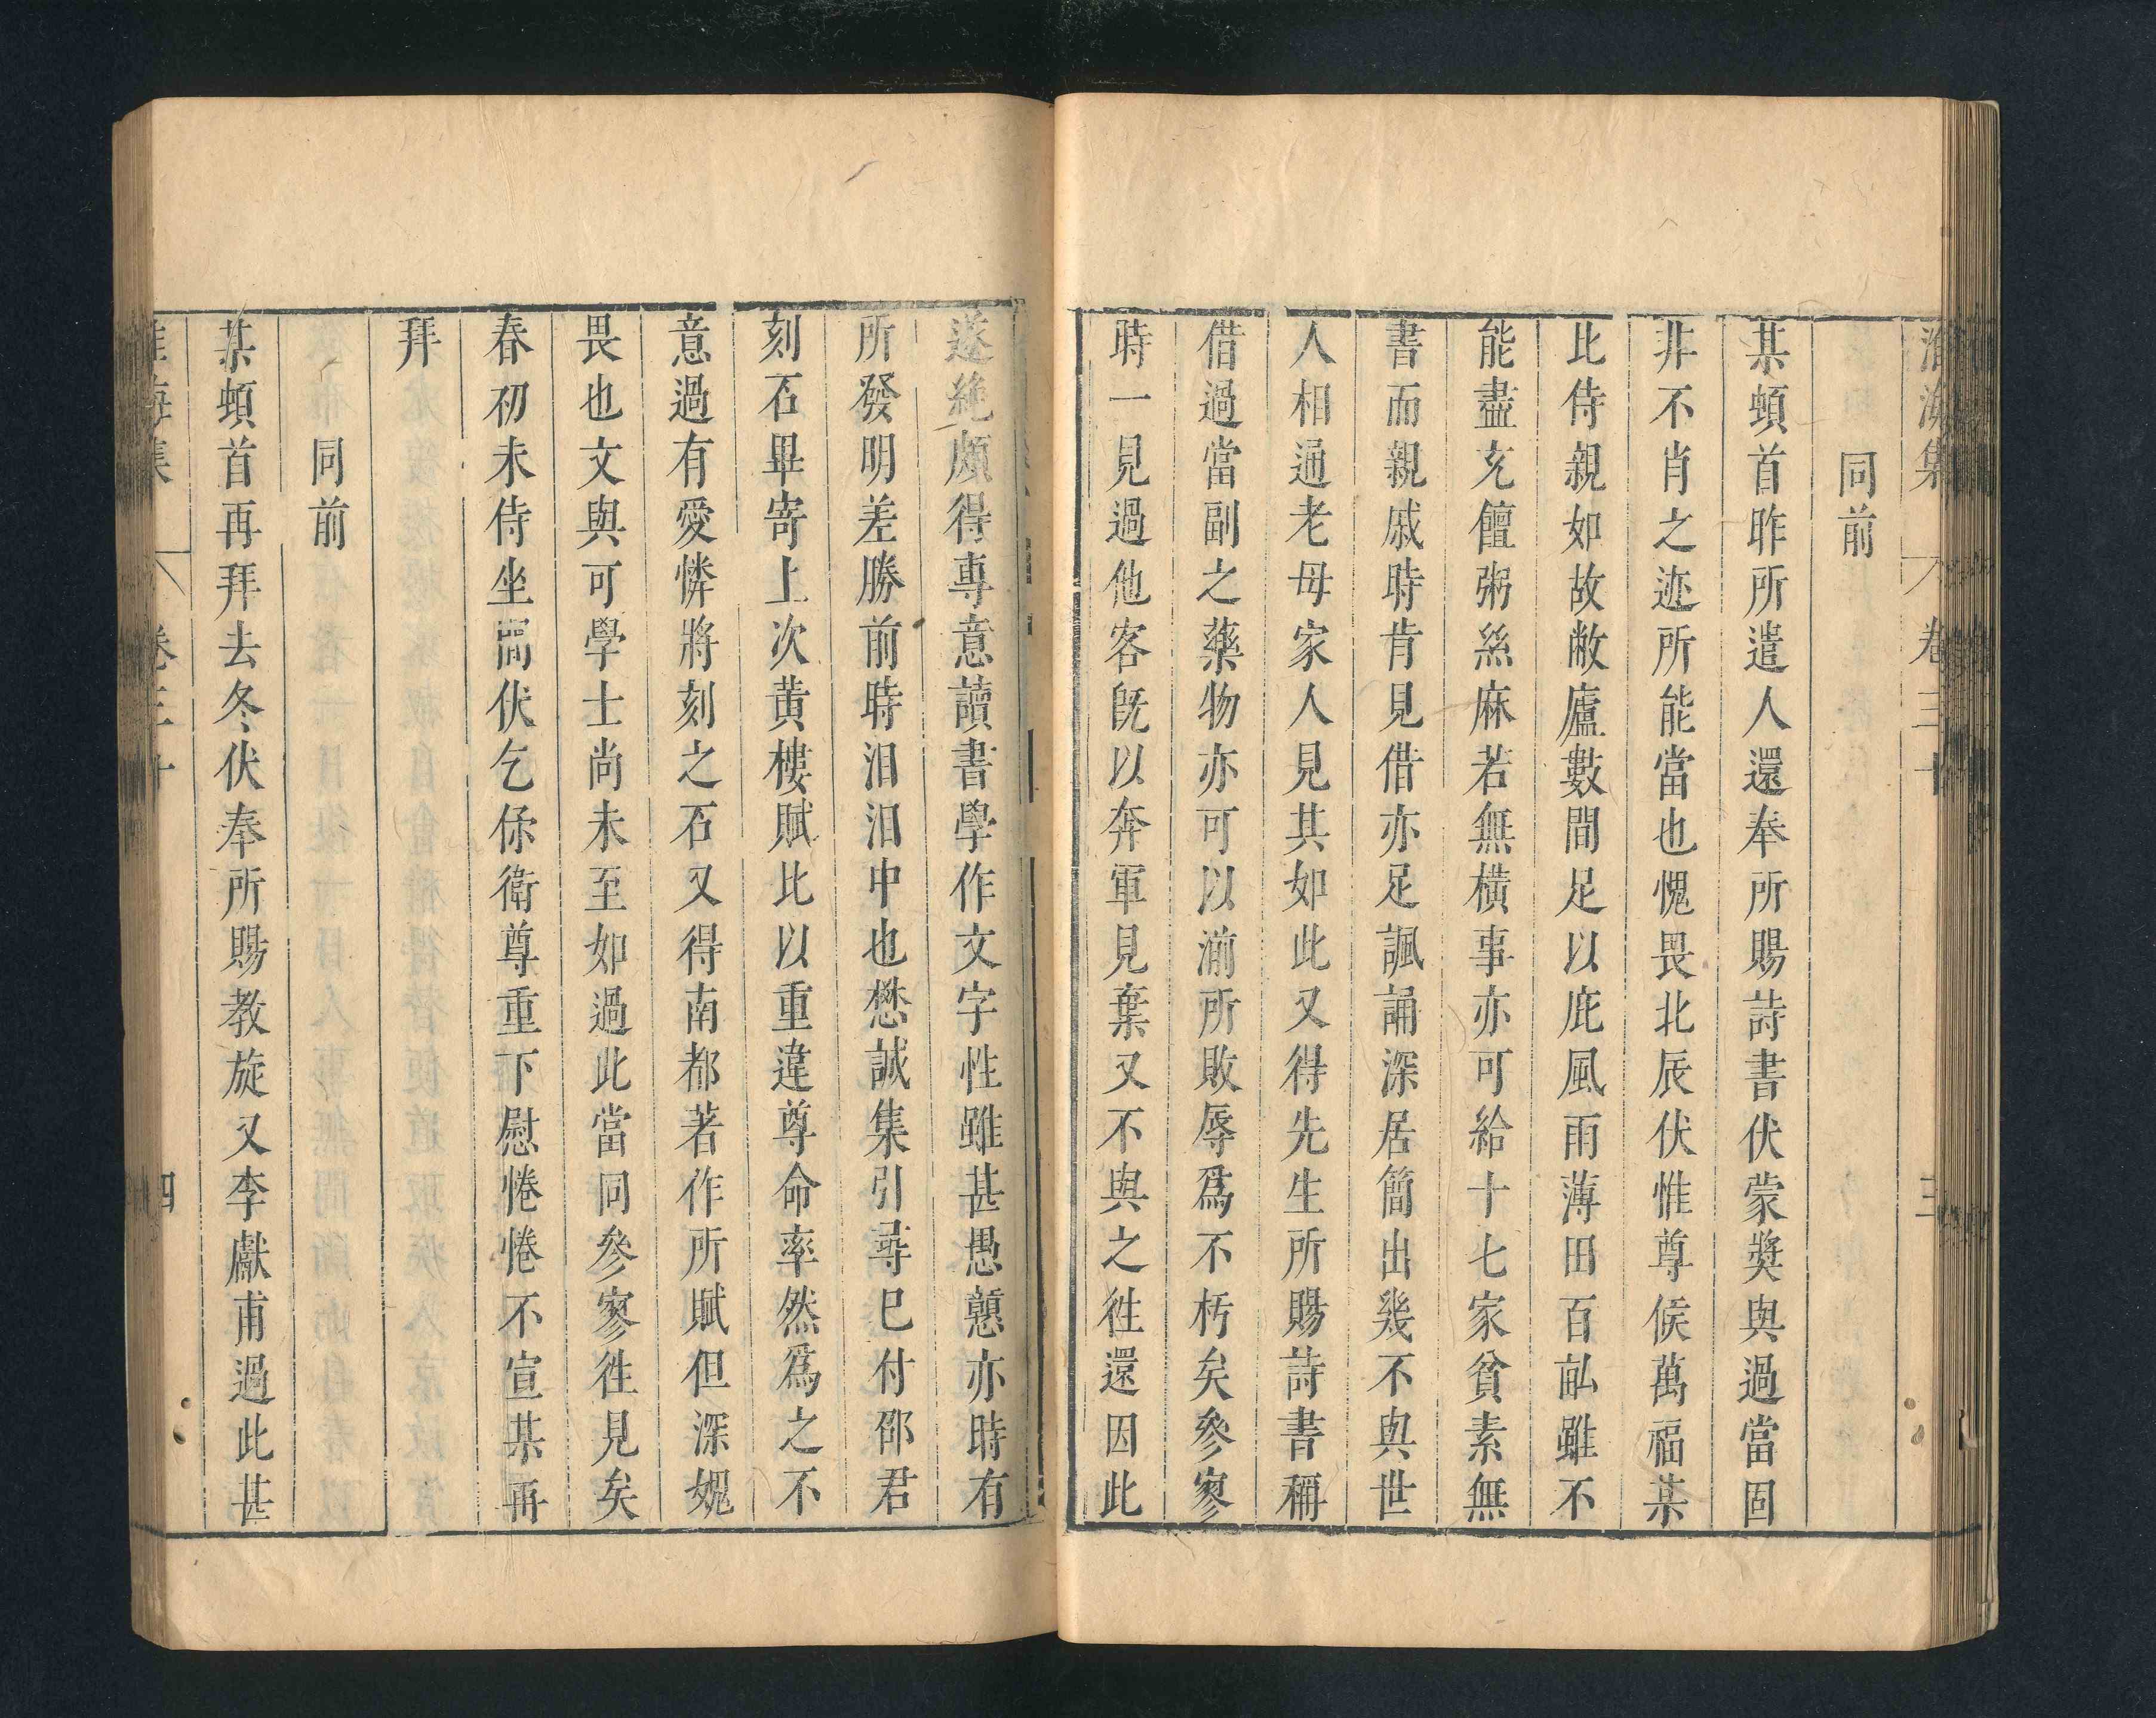 淮海集 卷三十 三
同前
某頓首昨所遣人還奉所賜詩書伏蒙奬與過當固
非不肖之迹所能當也愧畏北辰伏惟尊候萬福某
比侍親如故敝廬數間足以庇風雨薄田百畆雖不
能盡充饘粥絲麻若無橫事亦可給十七家貧素無
書而親戚時肯見借亦足諷誦深居簡出幾不與世
人相通老母家人見其如此又得先生所賜詩書稱
借過當副之藥物亦可以湔所敗辱爲不朽矣參寥
時一見過他客旣以奔軍見棄又不與之徃還因此
遂絶頗得專意讀書學作文字性雖甚愚戅亦時有
所發明差勝前時汩汩中也懋誠集引尋已付邵君
刻石畢寄上次黄樓賦比以重違尊命率然爲之不
意過有愛憐將刻之石又得南都著作所賦但深媿
畏也文與可學士尚未至如過此當同參寥徃見矣
春初未侍坐間伏乞保衛尊重下慰惓惓不宣某再
拜
同前
某頓首再拜去冬伏奉所賜教旋又李獻甫過此甚
淮海集 卷三十 四